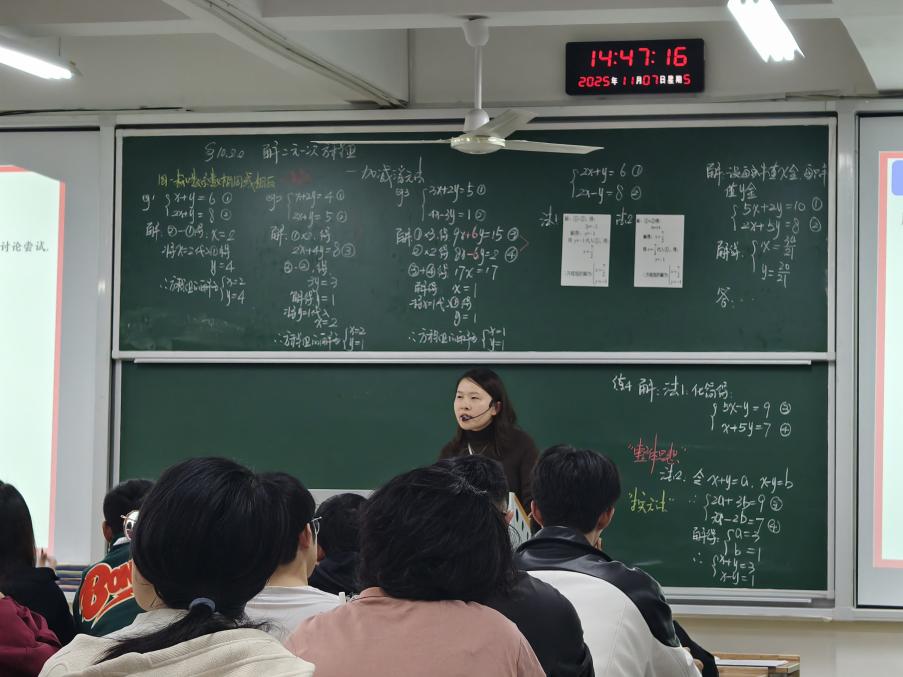 14:47:16
2025年11月07日星期5
讨论尝试.
解二元一次方程组
—加减消元法
eg1 { x+y=6 ①
2x+y=8 ②
解:②-①得, x=2
将x=2代入①得
y=4
∴方程组的解为 { x=2
y=4
eg2 { x+2y=4 ①
2x+y=5 ②
解:①×2,得
2x+4y=8 ③
③-②,得
3y=3
解得 y=1
将y=1代入
x=2
∴方程组的解为 { x=2
y=1
eg3 { 3x+2y=5 ①
4x-3y=1 ②
解:①×3,得 9x+6y=15 ③
②×2,得 8x-6y=2 ④
③+④得 17x=17
解得 x=1
将x=1代入①得
y=1
∴方程组的解为 { x=1
y=1
{ 2x+y=6 ①
2x-y=8 ②
法1
法2
{ 5x+2y=10 ①
2x+5y=8 ②
解得 { x=34/21
y=20/21
答:...
练4 解:法1:化简得:
{ 5x-y=9 ③
x+5y=7 ④
"整体思想"
法2:令 x+y=a, x-y=b
"换元法"
∴ { 2a+3b=9 ③
-2b=7 ④
解得: { a=3
b=1
∴ { x+y=3
x-y=1